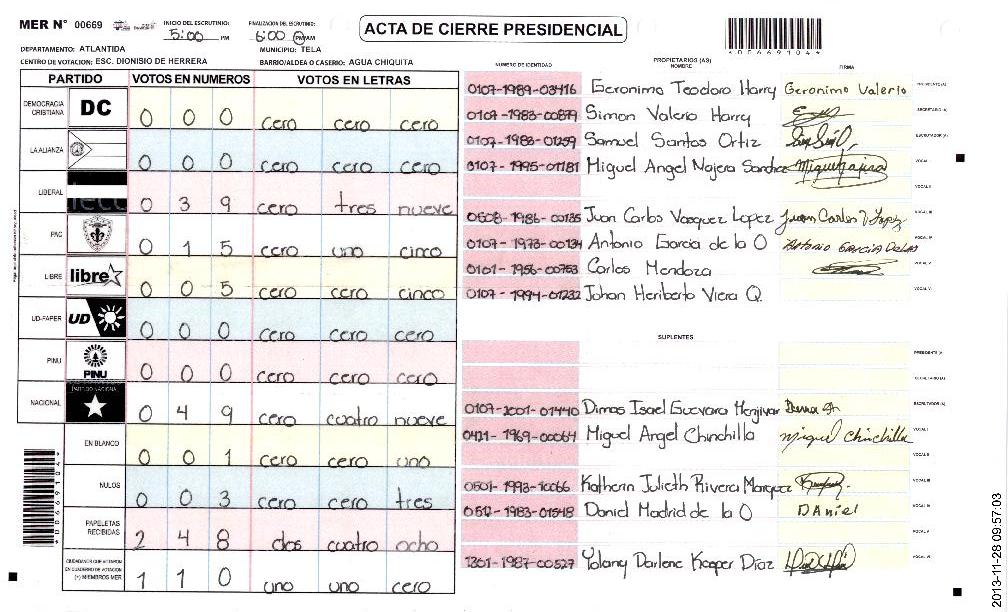 MER N° 00669
INICIO DEL ESCRUTINIO:
5:00 PM
FINALIZACIÓN DEL ESCRUTINIO:
6:00 PM/AM
ACTA DE CIERRE PRESIDENCIAL
*00669104*
DEPARTAMENTO: ATLANTIDA
MUNICIPIO: TELA
CENTRO DE VOTACION: ESC. DIONISIO DE HERRERA
BARRIO/ALDEA O CASERIO: AGUA CHIQUITA
PARTIDO VOTOS EN NUMEROS VOTOS EN LETRAS
DEMOCRACIA CRISTIANA DC 0 0 0 cero cero cero
LA ALIANZA 0 0 0 cero cero cero
LIBERAL 0 3 9 cero tres nueve
PAC 0 1 5 cero uno cinco
LIBRE libre 0 0 5 cero cero cinco
UD-FAPER UD 0 0 0 cero cero cero
PINU PINU 0 0 0 cero cero cero
NACIONAL PARTIDO NACIONAL 0 4 9 cero cuatro nueve
EN BLANCO 0 0 1 cero cero uno
NULOS 0 0 3 cero cero tres
PAPELETAS RECIBIDAS 2 4 8 dos cuatro ocho
CIUDADANOS QUE VOTARON EN CUADERNO DE VOTACION (+) MIEMBROS MER 1 1 0 uno uno cero
*00669104*
NUMERO DE IDENTIDAD PROPIETARIOS (AS) NOMBRE FIRMA
0107-1989-03416 Geronimo Teodoro Harry Geronimo Valerio PRESIDENTE (A)
0107-1983-00879 Simon Valerio Harry SECRETARIO (A)
0107-1983-01259 Samuel Santos Ortiz ESCRUTADOR (A)
0107-1995-01181 Miguel Angel Najera Sandrez VOCAL I
VOCAL II
0508-1986-00135 Juan Carlos Vasquez Lopez Juan Carlos V Lopez VOCAL III
0107-1973-00134 Antonio Garcia de la O Antonio Garcia De la O VOCAL IV
0101-1956-00753 Carlos Mendoza VOCAL V
0107-1994-01232 Johan Heriberto Viera Q. VOCAL VI
SUPLENTES
PRESIDENTE (A)
SECRETARIO (A)
0107-1001-01440 Dimas Isael Guevara Menjivar ESCRUTADOR (A)
0421-1969-00064 Miguel Angel Chinchilla Miguel Chinchilla VOCAL I
VOCAL II
0501-1993-10066 Katherin Julieth Rivera Marquez VOCAL III
0512-1983-01548 Daniel Madrid de la O DAniel VOCAL IV
VOCAL V
1301-1987-00527 Yolany Darlene Keoper Díaz VOCAL VI
2013-11-28 09:57:03